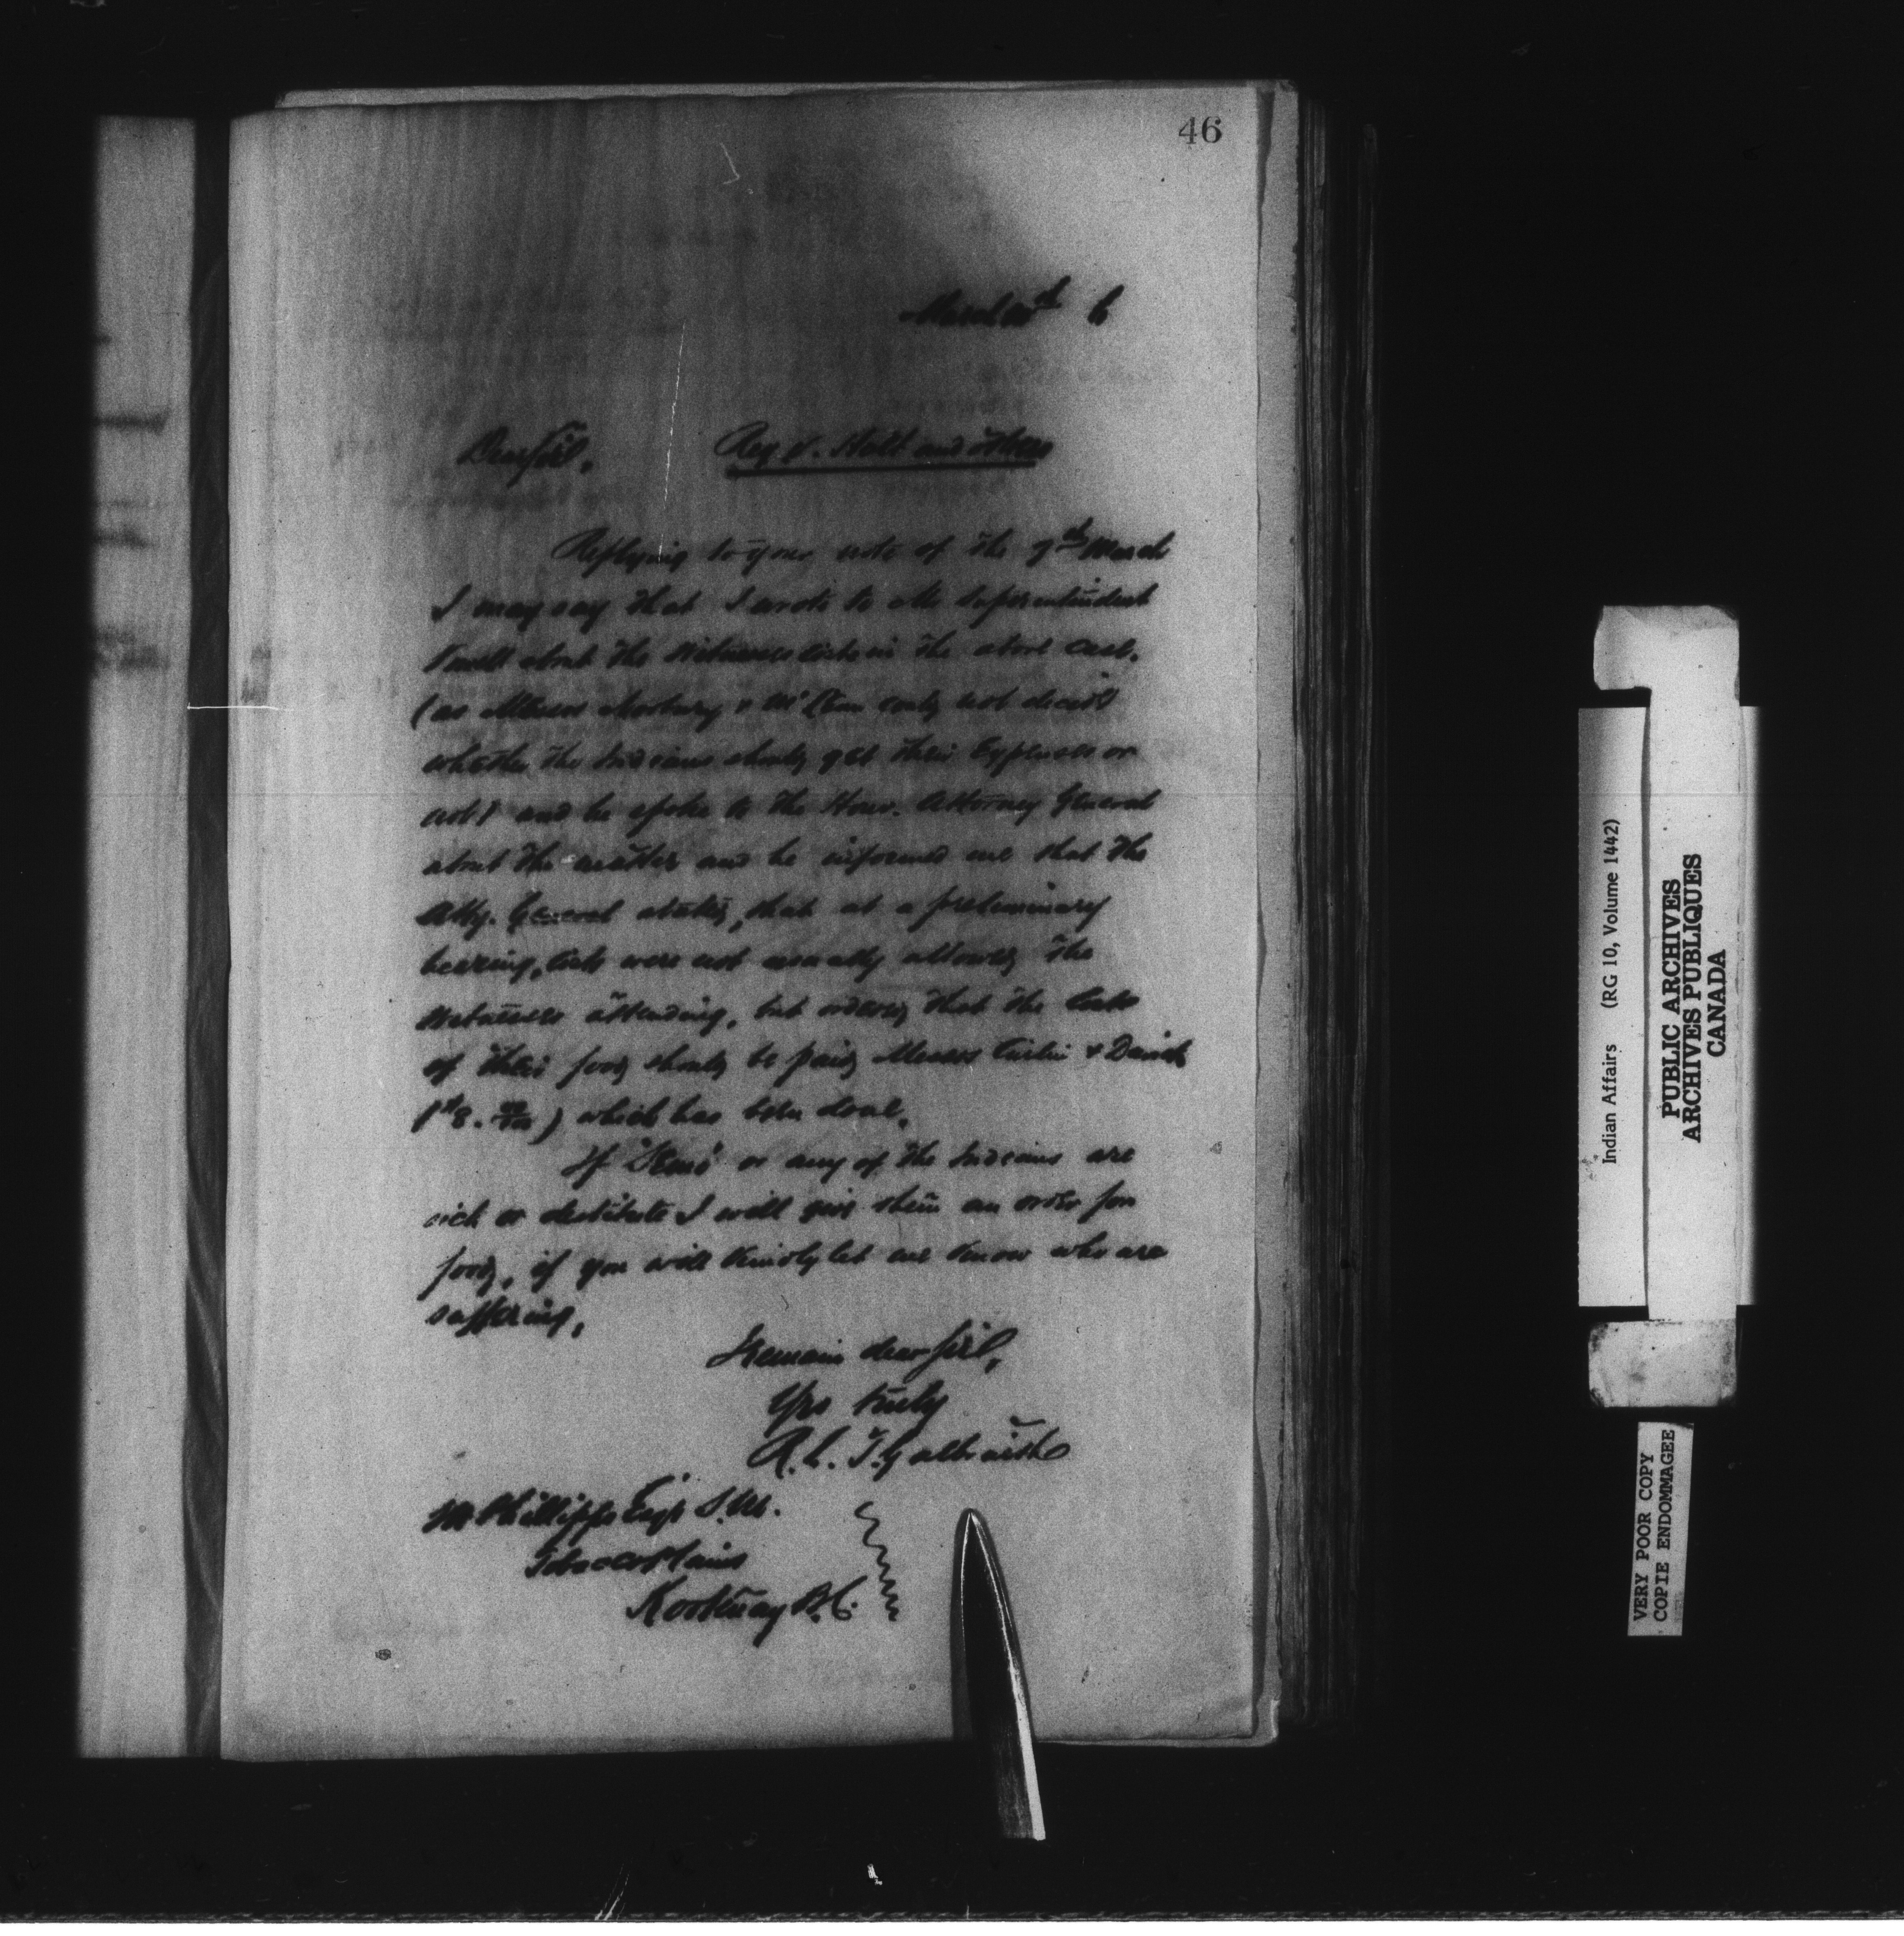 46
March th 6
Dear Sir, Reg v. and others
Replying to your note of the 7th March
I may say that I wrote to Mr Superintendent
Vowell about the Witnesses in the above case.
(as Messrs Norbury & could not decide
whether the Indians should get their Expenses or
not) and he spoke to the Honr. Attorney General
about the matter and he informed me that the
Atty. General stated, that at a preliminary
hearing, were not usually allowed the
Witnesses attending, but ordered that the
of their food should be paid Messrs Carlin &
which has been done.
If or any of the Indians are
sick or destitute I will give them an order for
food, if you will kindly let me know who are
suffering.
I remain dear Sir,
Yrs truly
R. L. T. Galbraith
M Phillipps Esqr
Tobacco Plains
Kootenay B.C.
Indian Affairs (RG 10, Volume 1442)
PUBLIC ARCHIVES
ARCHIVES PUBLIQUES
CANADA
VERY POOR COPY
COPIE ENDOMMAGEE